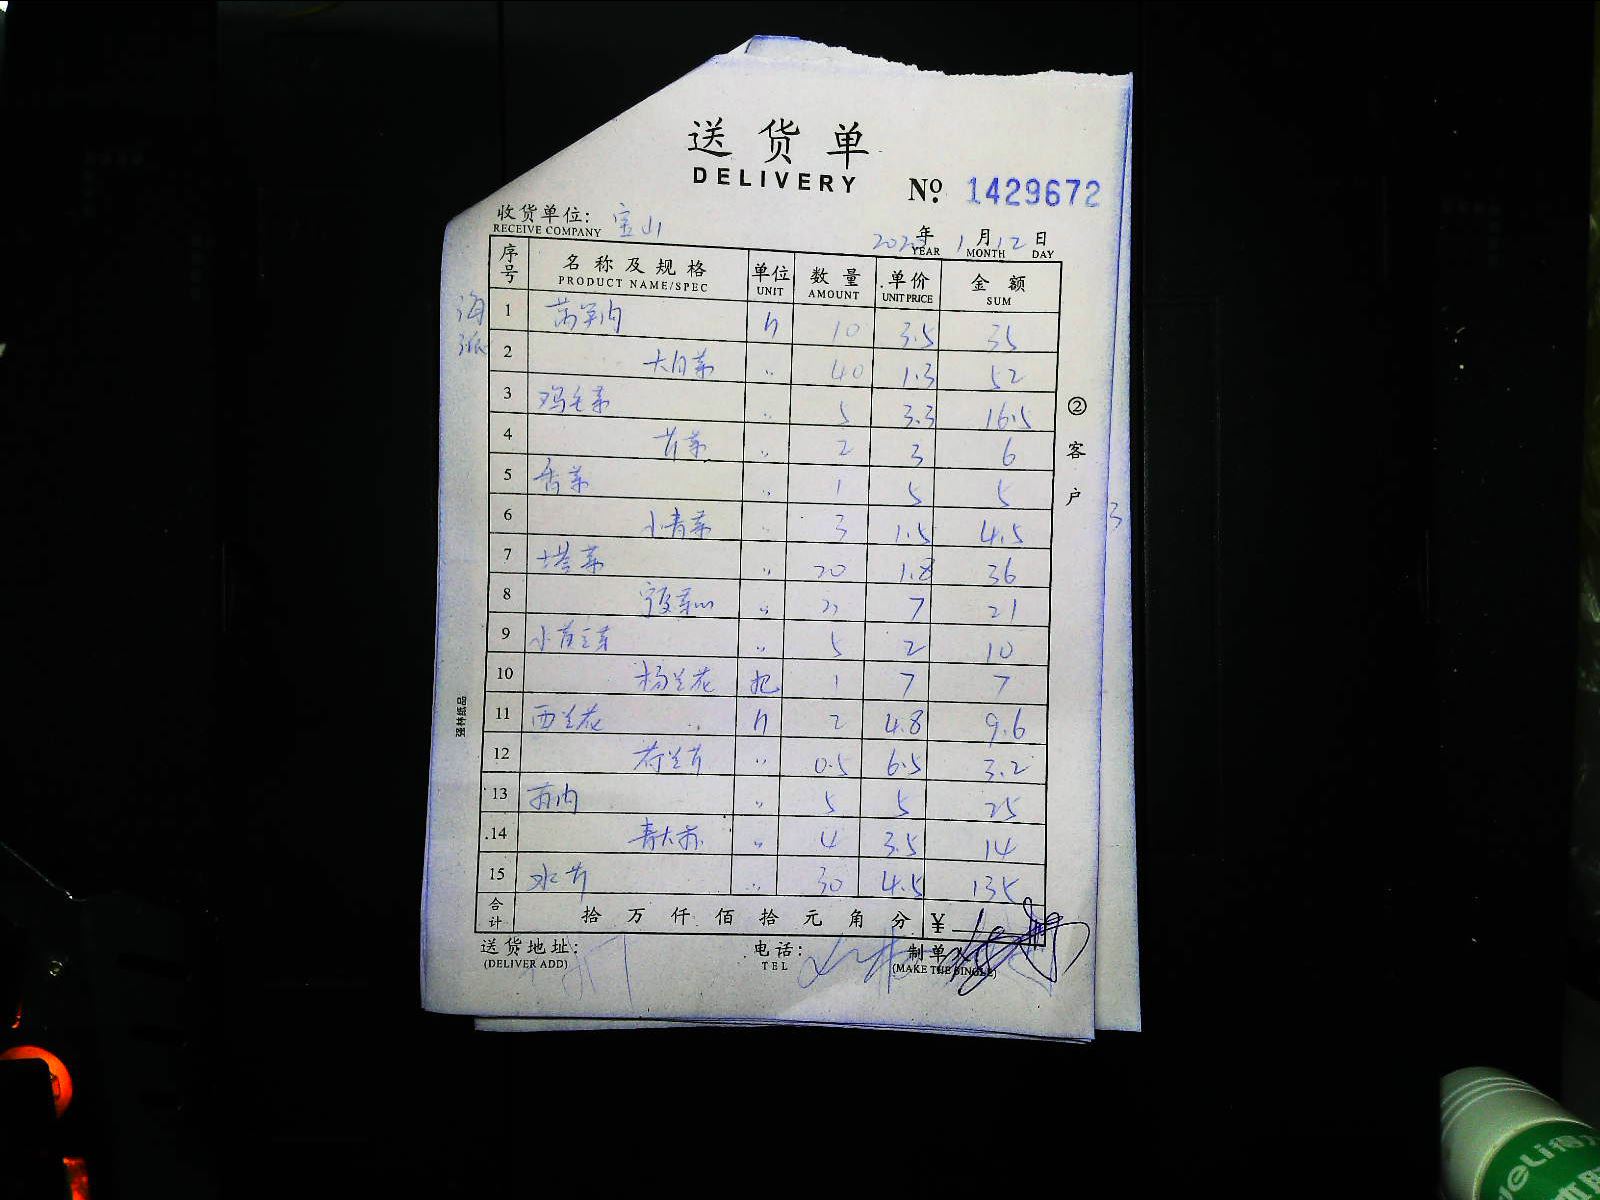 送货单
DELIVERY
No. 1429672
收货单位: 宝山
RECEIVE COMPANY
年 1月12日
YEAR MONTH DAY
序号 名称及规格 单位 数量 单价 金额
PRODUCT NAME/SPEC UNIT AMOUNT UNIT PRICE SUM
1 茼蒿 斤 10 3.5 35
2 大白菜 〃 40 1.3 52
3 鸡毛菜 〃 5 3.3 16.5
4 芹菜 〃 2 3 6
5 香菜 〃 1 5 5
6 小青菜 〃 3 1.5 4.5
7 塔菜 〃 20 1.8 36
8 宁夏菜心 〃 7 21
9 小 〃 5 2 10
10 杨兰花 把 1 7 7
11 西兰花 斤 2 4.8 9.6
12 荷兰芹 〃 0.5 6.5 3.2
13 〃 5 5 25
14 青大 〃 4 3.5 14
15 水芹 〃 30 4.5 135
合计 拾 万 仟 佰 拾 元 角 分 ¥
送货地址: 电话: 制单
(DELIVER ADD) TEL (MAKE THE BINGLE)
②客户
强林纸品
3